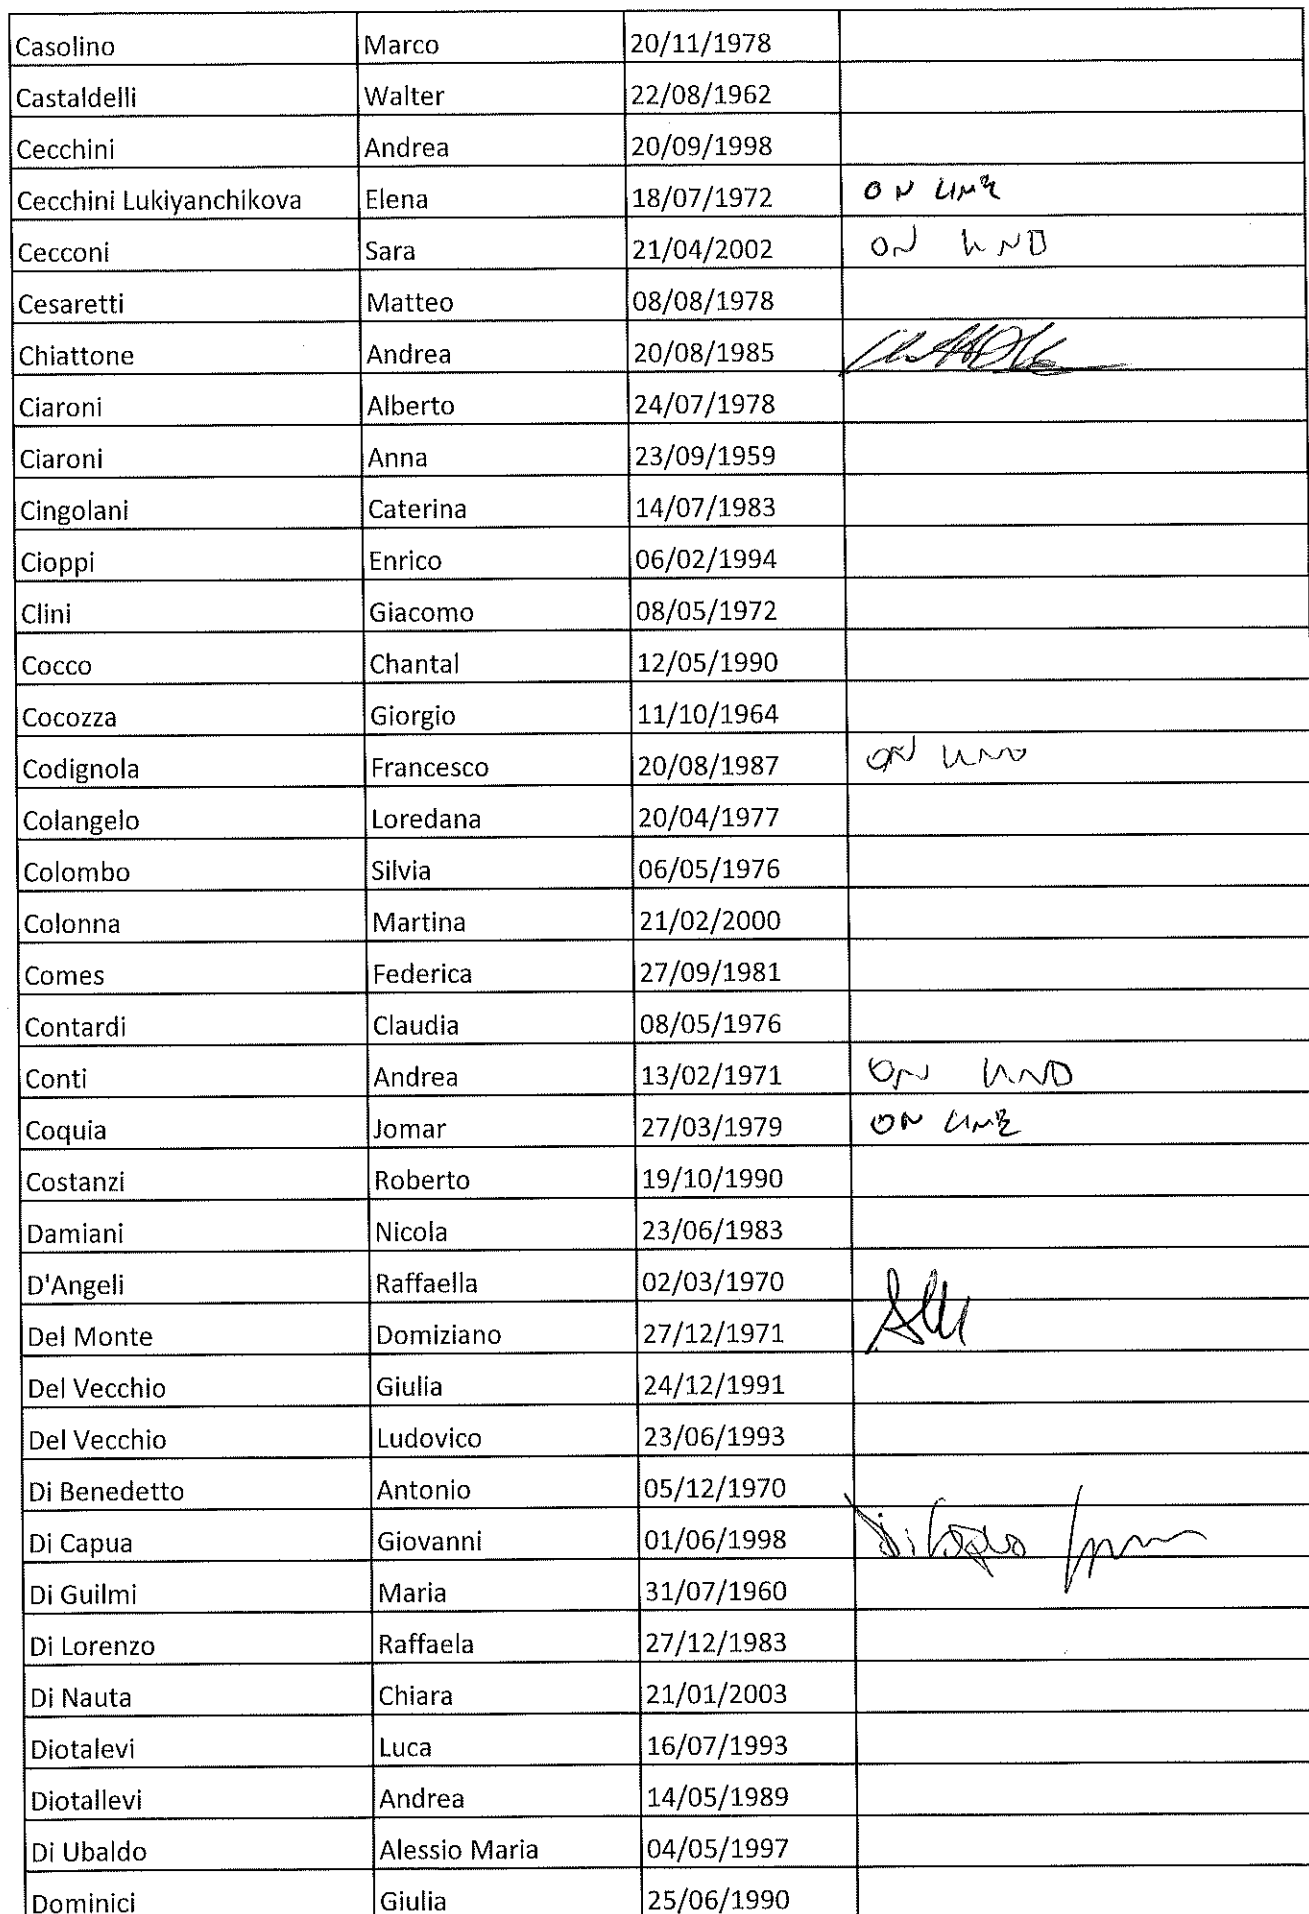 Casolino Marco 20/11/1978
Castaldelli Walter 22/08/1962
Cecchini Andrea 20/09/1998
Cecchini Lukiyanchikova Elena 18/07/1972 ON LINE
Cecconi Sara 21/04/2002 ON LINE
Cesaretti Matteo 08/08/1978
Chiattone Andrea 20/08/1985
Ciaroni Alberto 24/07/1978
Ciaroni Anna 23/09/1959
Cingolani Caterina 14/07/1983
Cioppi Enrico 06/02/1994
Clini Giacomo 08/05/1972
Cocco Chantal 12/05/1990
Cocozza Giorgio 11/10/1964
Codignola Francesco 20/08/1987 ON LINE
Colangelo Loredana 20/04/1977
Colombo Silvia 06/05/1976
Colonna Martina 21/02/2000
Comes Federica 27/09/1981
Contardi Claudia 08/05/1976
Conti Andrea 13/02/1971 ON LINE
Coquia Jomar 27/03/1979 ON LINE
Costanzi Roberto 19/10/1990
Damiani Nicola 23/06/1983
D'Angeli Raffaella 02/03/1970
Del Monte Domiziano 27/12/1971
Del Vecchio Giulia 24/12/1991
Del Vecchio Ludovico 23/06/1993
Di Benedetto Antonio 05/12/1970
Di Capua Giovanni 01/06/1998
Di Guilmi Maria 31/07/1960
Di Lorenzo Raffaela 27/12/1983
Di Nauta Chiara 21/01/2003
Diotalevi Luca 16/07/1993
Diotallevi Andrea 14/05/1989
Di Ubaldo Alessio Maria 04/05/1997
Dominici Giulia 25/06/1990